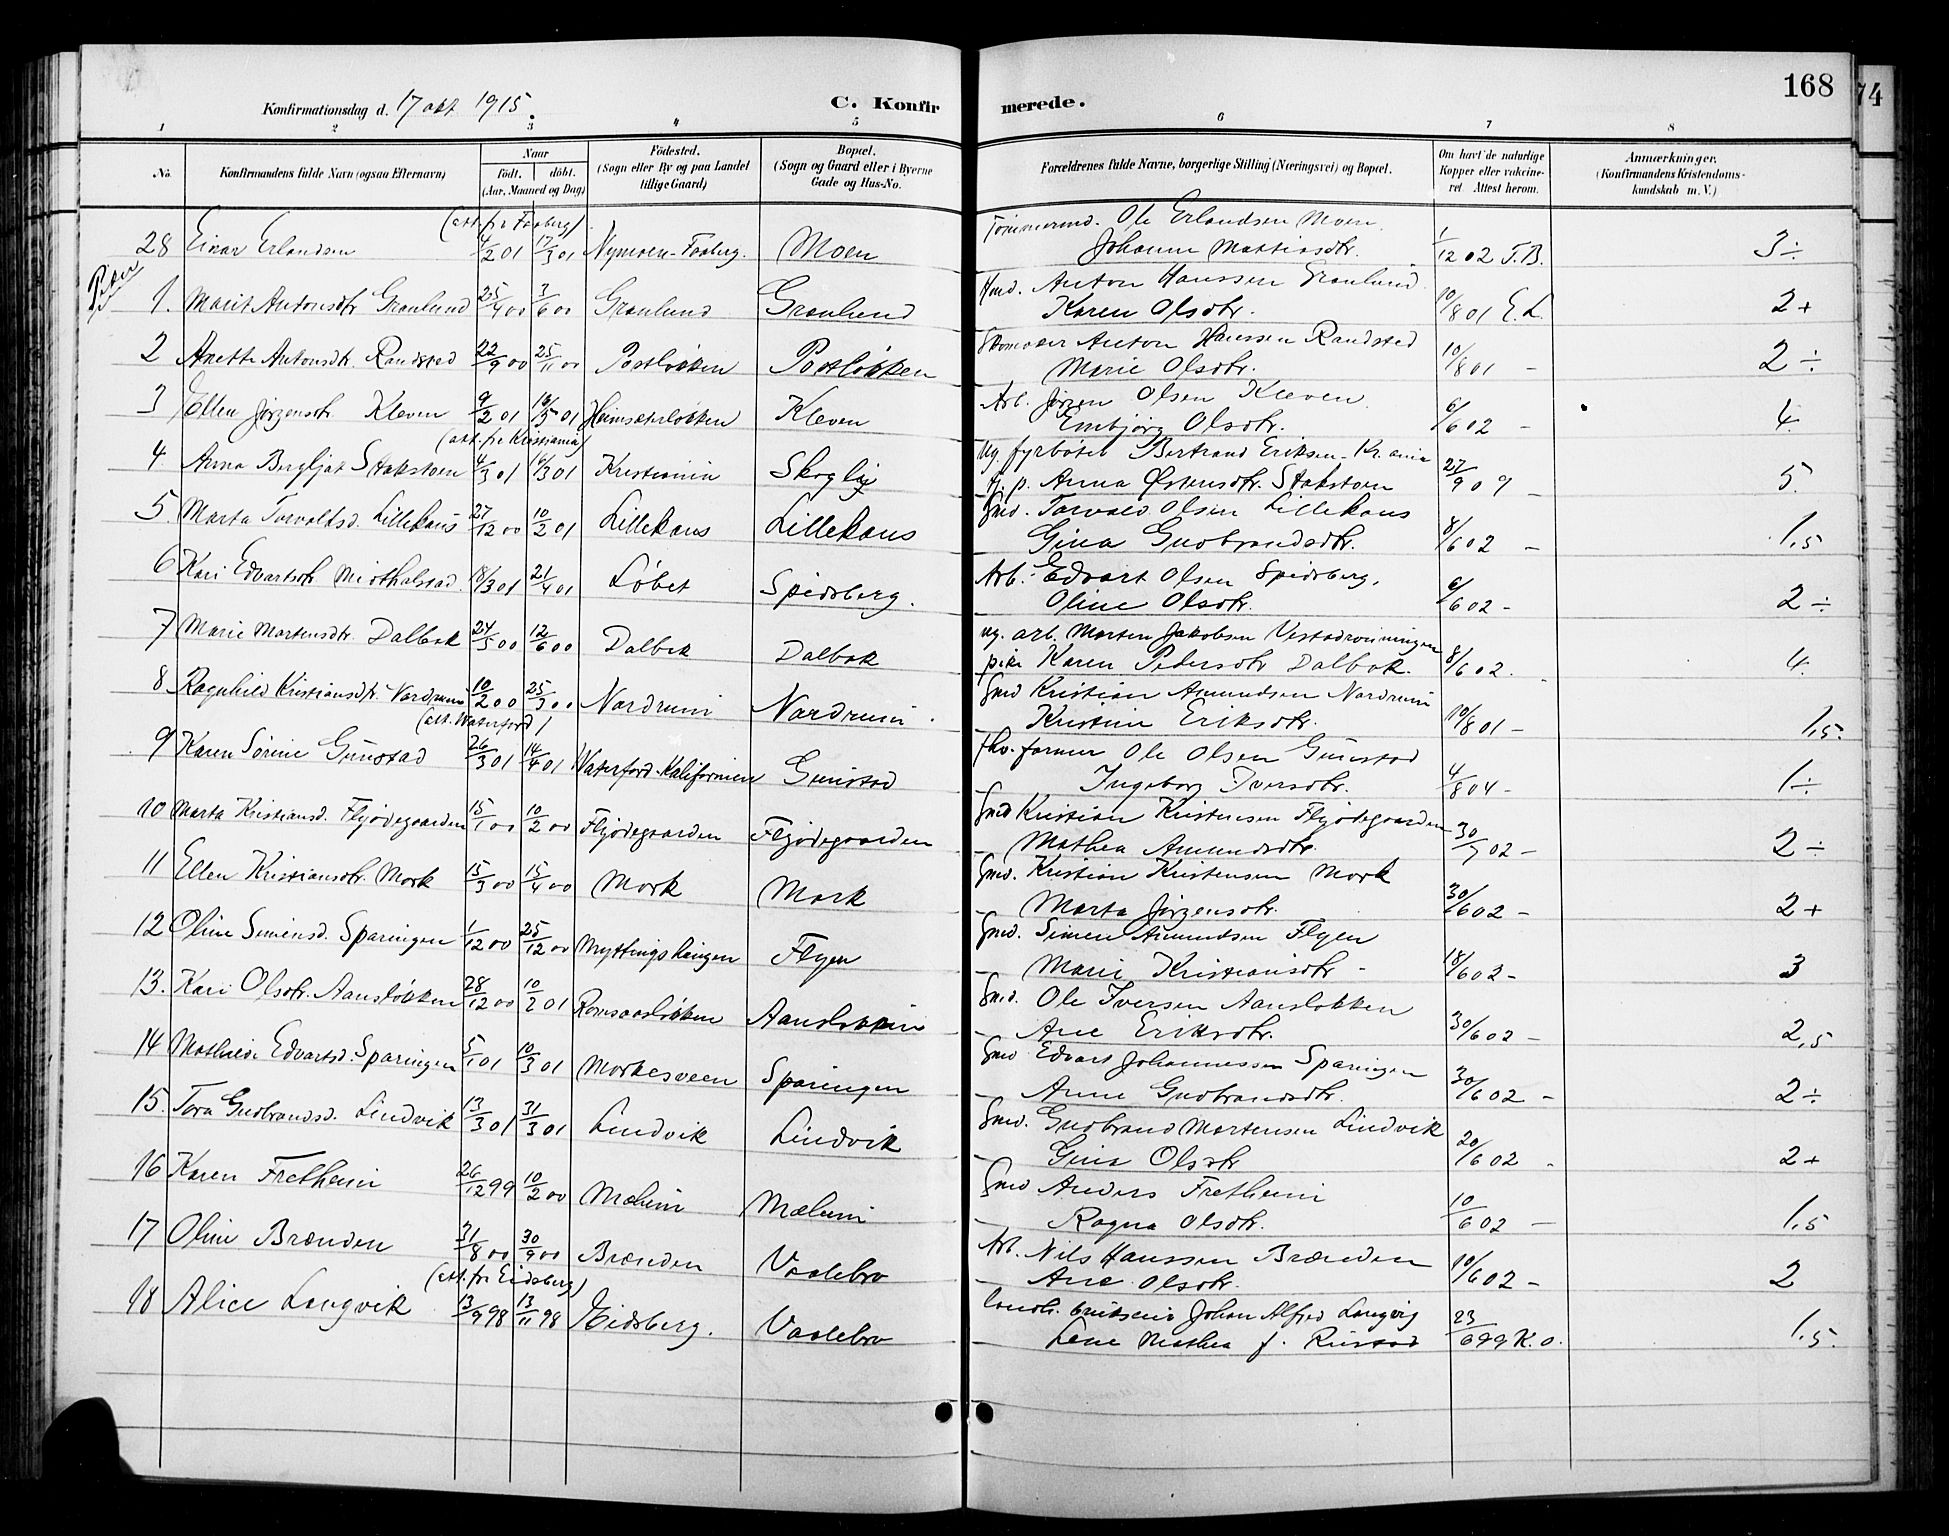 168
74
Konfirmationsdag d. 17 okt 1915.
C. Konfirmerede.
1 2 3 4 5 6 7 8
No. Konfirmandens fulde Navn (ogsaa Efternavn) Naar født. døbt. (Aar, Maaned og Dag) Fødested. (Sogn eller By og paa Landet tillige Gaard) Bopæl. (Sogn og Gaard eller i Byerne Gade og Hus-No. Forældrenes fulde Navne, borgerlige Stilling (Næringsvei) og Bopæl. Om havt de naturlige Kopper eller vaccineret. Attest herom. Anmærkninger. (Konfirmandens Kristendomskundskab m. V.)
(att. fr Faaberg)
28 Einar Erlandsen 4/2 01 17/3 01 Nymoen-Faaberg. Moen Tømmermd. Ole Erlandsen Moen
Johanne Mattiasdtr. 1/12 02 T.B. 3÷
Piker
1. Marit Antonsdtr Grønlund 25/4 00 3/6 00 Grønlund Grønlund Hmd. Anton Hanssen Grønlund
Karen Olsdtr. 10/8 01 E.L. 2+
2 Anette Antonsdtr. Randsted 22/9 00 25/11 00 Postløkken Postløkken Skomaker Anton Hanssen Randsted
Marie Olsdtr. 10/8 01 - 2÷
3 Ellen Jørgensdtr. Kleven 9/2 01 19/5 01 Heimsæterløkken Kleven Arb. Jørgen Olsen Kleven
Embjørg Olsdtr. 6/6 02 - 4
(att. fr Kristiania)
4 Anna Bergljot Stokstoen 4/3 01 16/3 01 Kristiania Skoglig Ug. fyrbøter Bertrand Eriksen - Kr.ania
tj. p. Anna Østensdtr. Stokstoen 27/9 09 - 5.
5. Marta Torvaldsd. Lillehaus 27/12 00 10/2 01 Lillehaus Lillehaus Gmd. Torvald Olsen Lillehaus
Gina Gudbrandsdtr. 8/6 02 - 1,5
6 Kari Edvartsdtr Midthalstad 18/3 01 21/4 01 Løbet Spidsberg. Arb. Edvart Olsen Spidsberg.
Oline Olsdtr. 6/6 02 - 2÷
7 Marie Martensdtr. Dalbak 24/5 00 12/6 00 Dalbak Dalbak ug. arb. Morten Jakobsen Vestadrønningen
pike Karen Pedersdtr Dalbak. 8/6 02. 4
8 Ragnhild Kristiansdtr. Nordrum 10/2 00 25/3 00 Nordrum Nordrum. Gmd Kristian Amundsen Nordrum
Kristine Eriksdtr. 10/8 01 - 1,5.
(att. Waterford)
9 Karen Sørine Gunstad 26/3 01 14/4 01 Waterford-Kalifornien Gunstad fhv. farmer Ole Olsen Gunstad
Ingeborg Iversdtr. 4/8 04 - 1÷
10 Marta Kristiansd. Fljødegaarden 15/1 00 10/2 00 Fljødegaarden Fljødegaarden Gmd Kristian Kristensen Fljødegaarden
Mathea Amundsdtr. 30/5 02 - 2÷
11 Ellen Kristiansdtr. Mork 15/3 00 15/4 00 Mork Mork Gmd. Kristian Kristensen Mork
Marta Jørgensdtr. 30/6 02 - 2+
12 Oline Simensd. Sparingen 1/12 00 25/12 00 Myttingshaugen Flyen Gmd. Simen Amundsen Flyen
Marie Kristiansdtr - 18/6 02 - 3
13. Kari Olsdtr. Aansløkken 28/12 00 10/2 01 Romsaasløkken Aansløkken Gmd. Ole Iversen Aansløkken
Ane Eriksdtr. 30/6 02 - 2,5
14 Mathilde Edvartsd. Sparingen 5/1 01 10/3 01 Morkesveen Sparingen Gmd Edvart Johannessen Sparingen
Anne Gudbrandsdtr. 30/6 02 - 2÷
15. Tora Gudbrandsd. Lindvik 13/3 01 31/3 01 Lindvik Lindvik Gmd. Gudbrand Mortensen Lindvik
Gina Olsdtr 20/6 02 - 2+
16 Karen Fretheim 26/12 99 10/2 00 Mælum Mælum Gmd Anders Fretheim
Ragna Olsdtr. 10/6 02 - 1,5
17 Oline Brænden 31/8 00 30/9 00 Brænden Vaalebro Arb. Nils Hanssen Brænden
Ane Olsdtr. 10/6 02 - 2
(att. fr Eidsberg)
18 Alice Langvik 13/9 98 13/11 98 Eidsberg. Vaalebro Johan Alfred Langvig
Lene Mathea f. Rustad 23/6 99 K.O. 1,5.